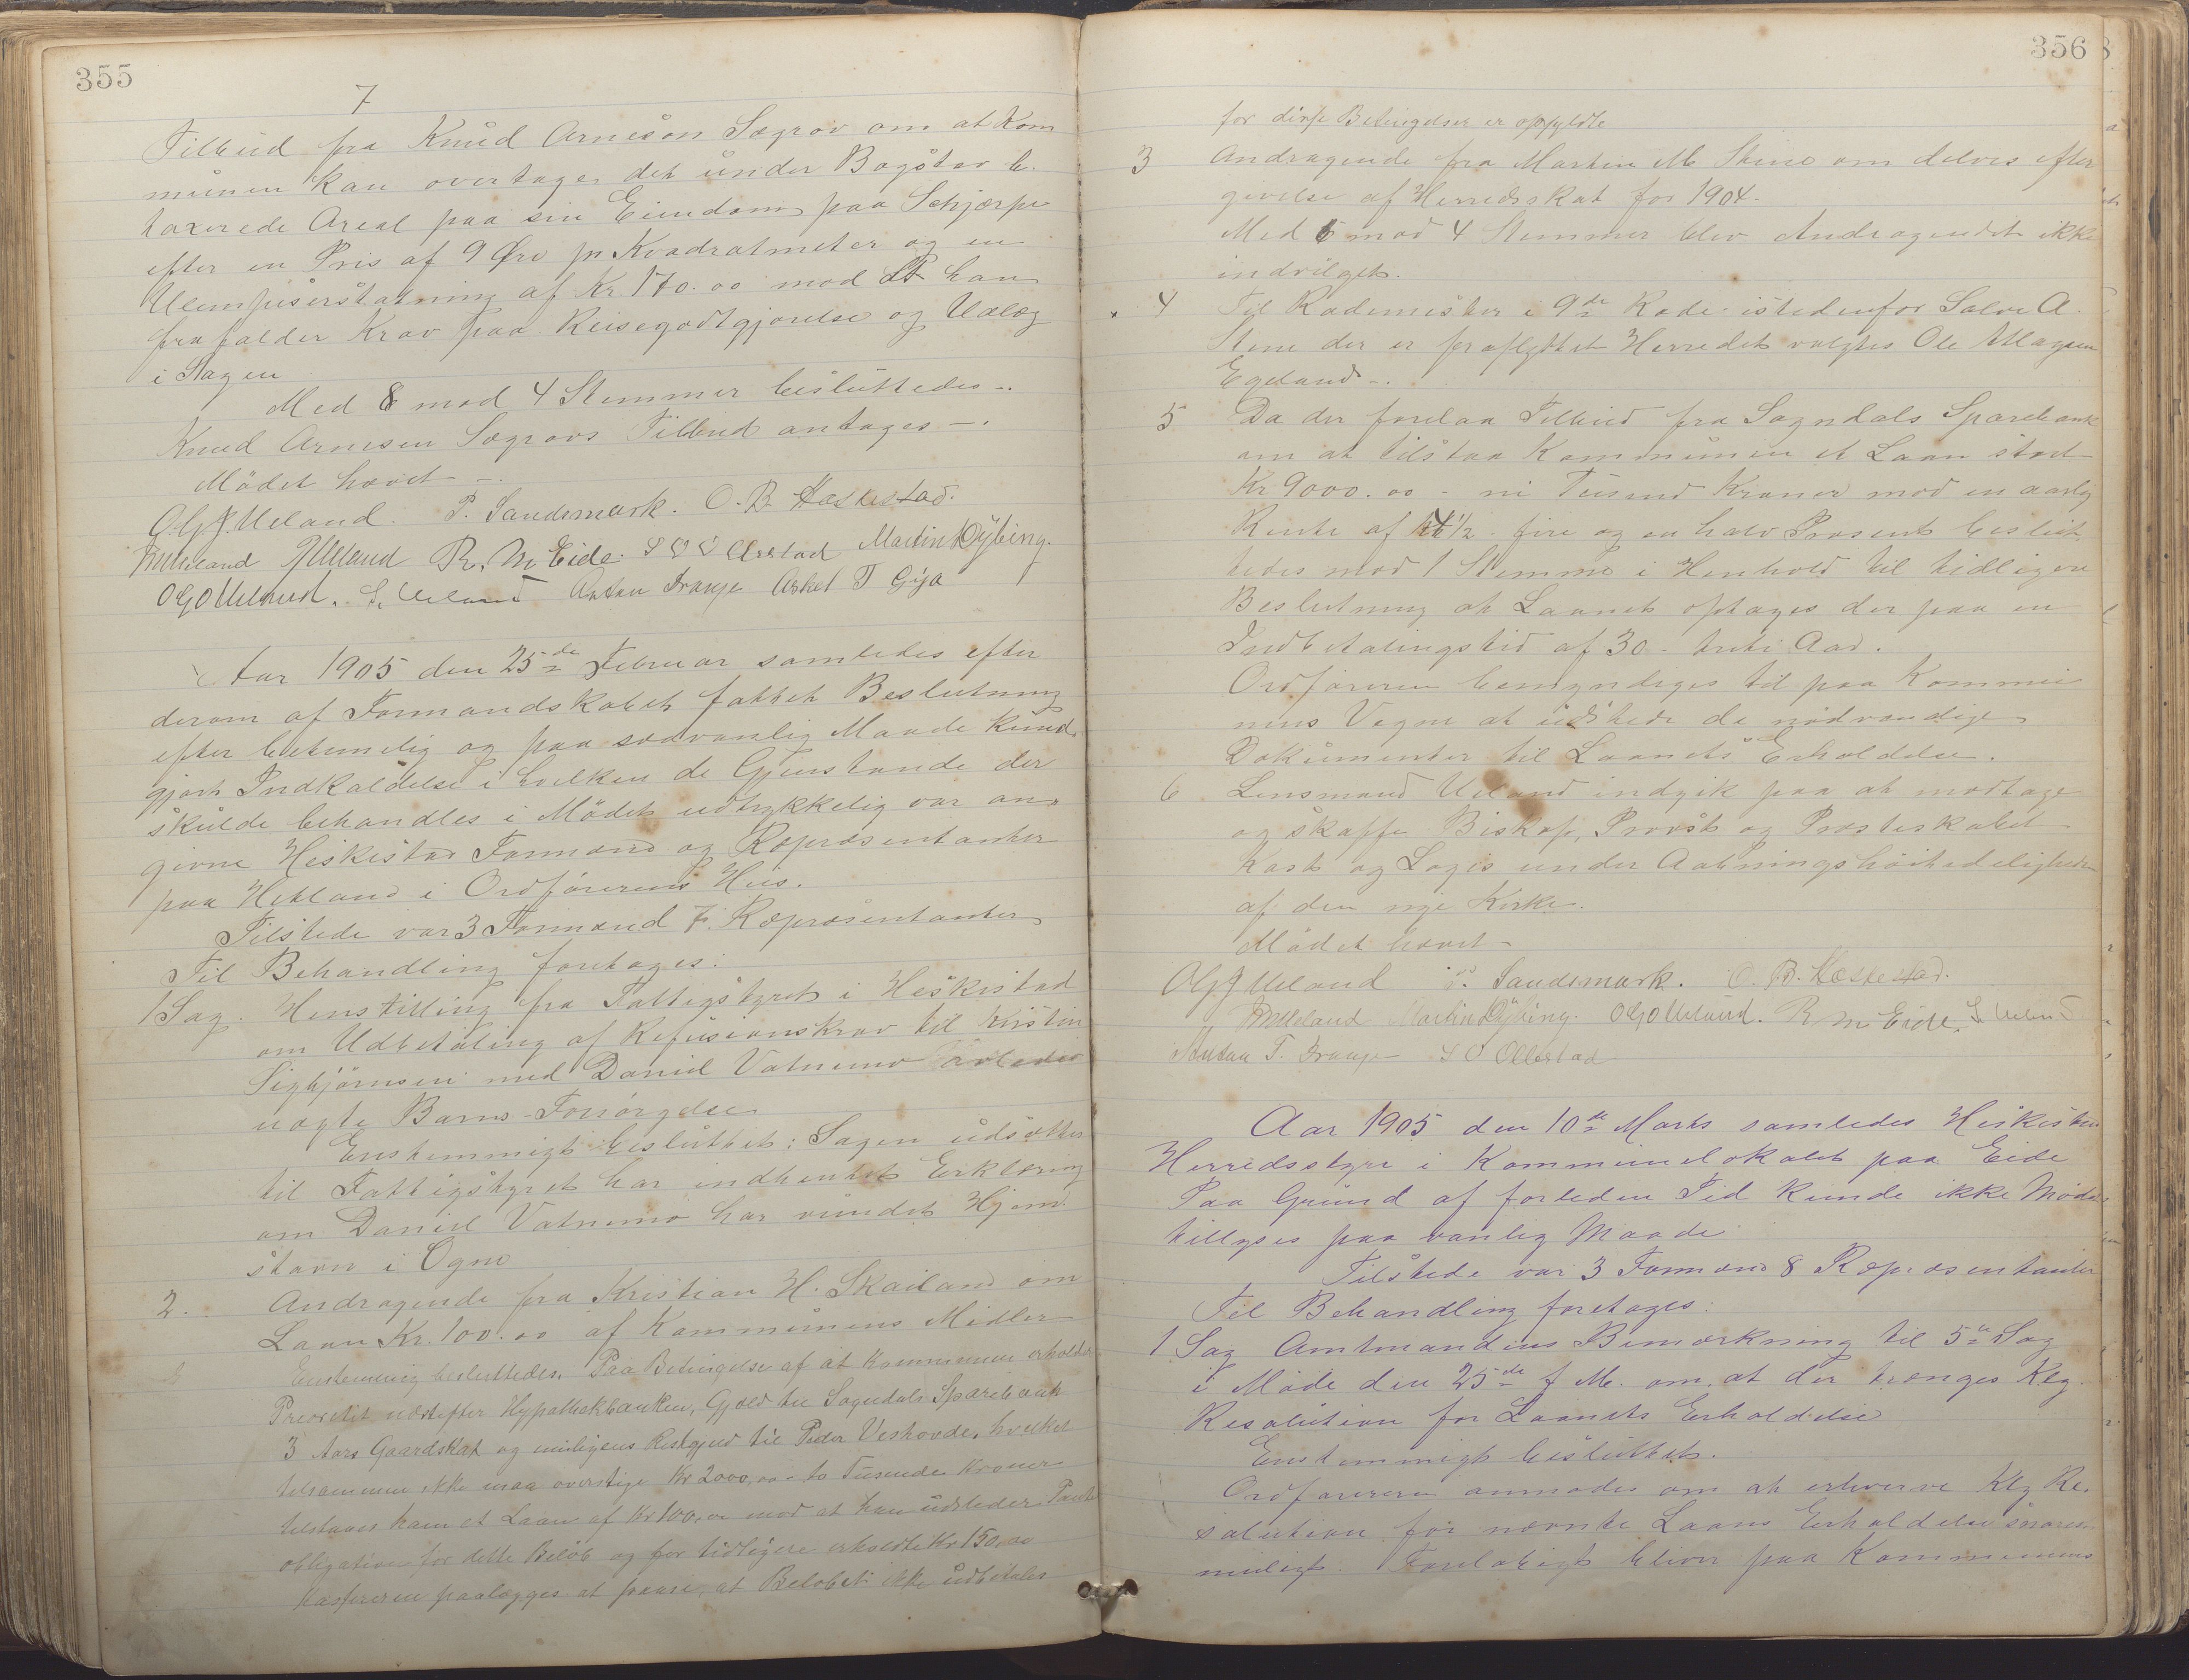 355
7
Tilbud fra Knud Arneson Sægrov om at Kom
munen kan overtage det under Bogstav b.
taxerede Areal paa sin Eiendom paa Schjærpe
efter en Pris af 9 Øre pr Kvadratmeter og en
Ulempeserstatning af Kr. 170.00 mod at han
frafalder Krav paa Reisegodtgjørelse og Udlæg
i Sagen
Med 8 mod 4 Stemmer besluttedes -.
Knud Arnesen Sægrovs Tilbud antages -.
Mødet hævet -.
O.G.J. Ueland. P. Sandsmark. O.B. Hæskestad.
Ueland Ueland R. M Eide. Ollestad Martin Dybing.
O G O Ueland. S. Ueland Anton Drange Askel T Gya
Aar 1905 den 25de Februar samledes efter
derom af Formandskabet fattet Beslutning
efter betimelig og paa sedvanlig Maade kund
gjort Indkaldelse i hvilken de Gjenstande der
skulde behandles i Mødet udtrykkelig var an-
givne Heskestad Formænd og Repræsentanter
paa Hetland i Ordførerens Hus.
Tilstede var 3 Formænd 7 Repræsentanter
Til Behandling foretoges:
1 Sag. Henstilling fra Fattigstyret i Heskestad
om Udbetaling af Refusionskrav til Kristin
Sigbjørnsen med Daniel Vatnemo avlede
uægte Barns-Forsørgelse
Enstemmigt besluttet: Sagen udsættes
til Fattigstyret har indhentet Erklæring
om Daniel Vatnemo har vundet Hjem
stavn i Ogne
2. Andragende fra Kristian H. Skailand om
Laan Kr. 100.00 af Kommunens Midler
Enstemmig besluttedes. Paa Betingelse af at Kommunen erholder
Prioritet næstefter Hypothekbanken, Gjæld til Sogndals Sparebank
3 Aars Gaardskat og muligens Restgjeld til Peder Veshovde, hvilket
tilsammen ikke maa overstige Kr 2000,00 to Tusunde Kroner
tilstaaes ham et Laan af Kr 100,00 mod at han udsteder Pante
obligation for dette Beløb og for tidligere erholdte Kr 150,00
Kassereren paalægges at paase, at Beløbet ikke udbetales
356
for disse Betingelser er opfyldte
3 Andragende fra Morten M Stene om delvis efter
givelse af Herredsskat for 1904.
Med 6 mod 4 Stemmer blev Andragendet ikke
indvilget.
4 Til Rodemester i 9de Rode istedenfor Salve A.
Stene der er fraflyttet Herredet valgtes Ole Magnesen
Egeland -.
5 Da der forelaa Tilbud fra Sogndals Sparebank
om at tilstaa Kommunen et Laan stort
Kr 9000.00 - ni Tusend Kroner mod en aarlig
Rente af 4 1/2 fire og en halv Prosent beslut
tedes mod 1 Stemme i Henhold til tidligere
Beslutning at Laanet optages der paa en
Indbetalingstid af 30 - treti Aar.
Ordføreren bemyndiges til paa Kommu
nens Vegne at udstede de nødvendige
Dokumenter til Laanets Erholdelse.
6 Lensmand Ueland indgik paa at modtage
og skaffe Biskop, Provst og Presteskabet
Kost og Logis under Aabningshøitideligheden
af den nye Kirke.
Mødet hævet -
O G J Ueland P. Sandsmark. O. B. Hæskestad.
Ueland Martin Dybing. O G O Ueland. R M Eide. S Ueland
Anton T. Drange S O Ollestad
Aar 1905 den 10de Marts samledes Heskestad
Herredsstyre i Kommunelokalet paa Eide
Paa Grund af forleden Tid kunde ikke Mødet
tillyses paa vanlig Maade
Tilstede var 3 Formænd 8 Repræsentanter
Til Behandling foretoges:
1 Sag Amtmandens Bemærkning til 5te Sag
i Møde den 25de f. M. om at der trænges Klg.
Resolution for Laanets Erholdelse
Enstemmigt besluttet.
Ordføreren anmodes om at erhverve Klg Re.
solution for nævnte Laans Erholdelse snarest
muligt. Foreløbigt bliver paa Kommunens